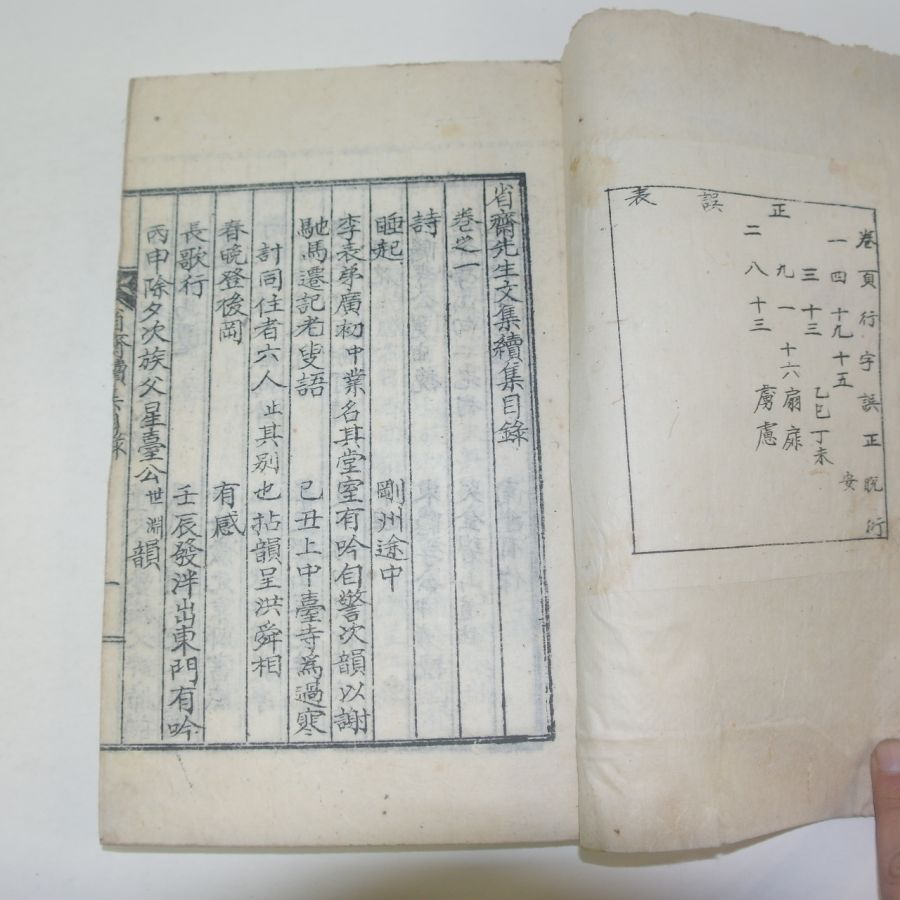 正誤表
卷頁行字誤正脫衍
一四十九十五安
三十三乙巳丁未
九一十六扇扉
二八十三虜慮
省齋先生文集續集目錄
卷之一
詩
睡起 剛州途中
李表弟廣初中業名其堂室有吟自警次韻以謝
馳馬遷記老叟語 己丑上中臺寺爲過寒
計同住者六人止其別也拈韻呈洪舜相
春晚登後岡 有感
長歌行 壬辰發泮出東門有吟
丙申除夕次族父星臺公世淵韻